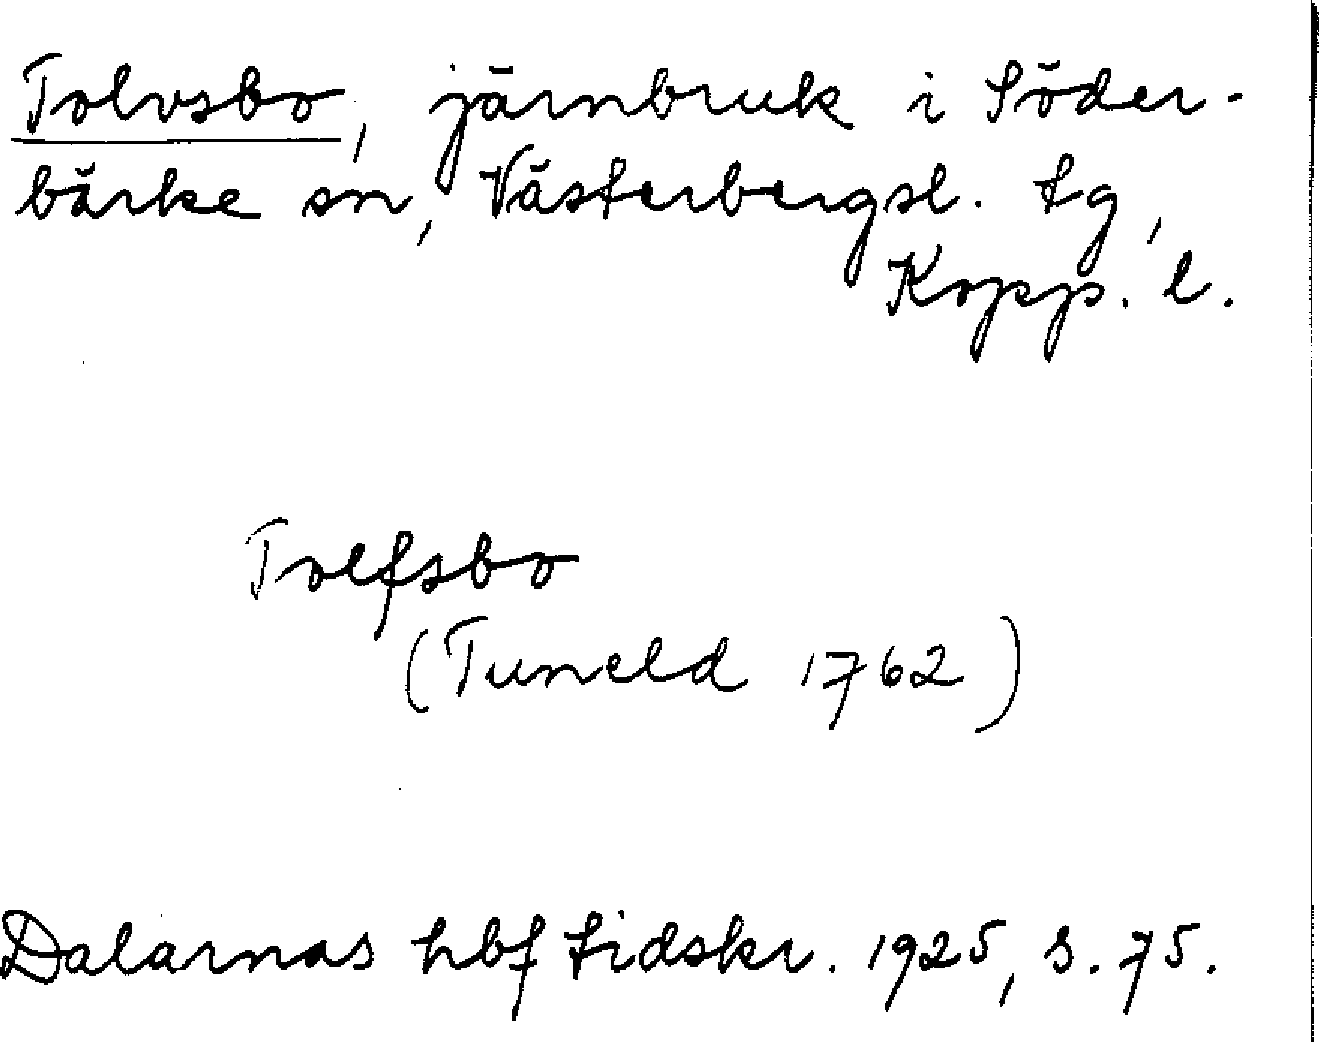 Tolvsbo, järnbruk i Söder-
bärke sn, Västerbergsl. tg,
Kopp. l.
Tolfsbo
(Tuneld 1762)
Dalarnas hbf tidskr. 1925, s. 75.